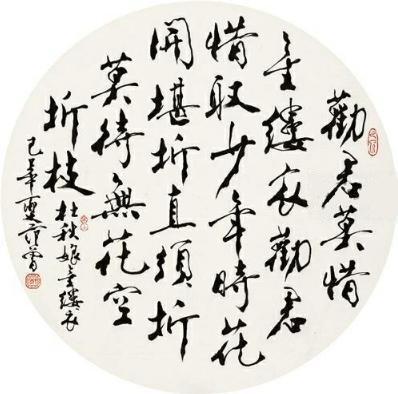 勸君莫惜
金縷衣勸君
惜取少年時花
開堪折直須折
莫待無花空
折枝
杜秋娘金縷衣
范曾